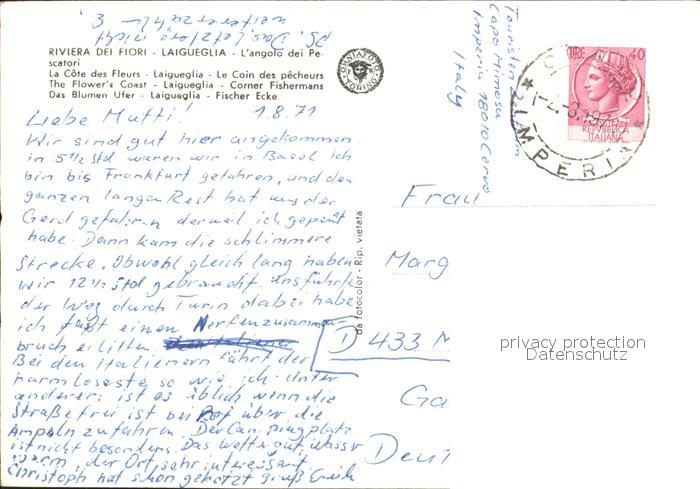 PS. Das letzte nicht
weitererzählen
RIVIERA DEI FIORI - LAIGUEGLIA - L'angolo dei Pe-
scatori
La Côte des Fleurs - Laigueglia - Le Coin des pêcheurs
The Flower's Coast - Laigueglia - Corner Fishermans
Das Blumen Ufer - Laigueglia - Fischer Ecke
Liebe Mutti! 1.8.71
Wir sind gut hier angekommen
in 5½ Std waren wir in Basel ich
bin bis Frankfurt gefahren, und den
ganzen langen Rest hat uns der
Gerd gefahren derweil ich gepennt
habe. Dann kam die schlimmere
Strecke. Obwohl gleich lang haben
wir 12½ Std gebraucht. Uns führte
der Weg durch Turin dabei habe
ich fast einen Nerfenzusammen
bruch erlitten
Bei den Italienern fährt der
harmloseste so wie ich. Unter
anderer: ist es üblich wenn die
Straße frei ist bei Rot über die
Ampeln zu fahren. Der Campingplatz
ist nicht besonders. Das Wetter gut, Wasser
warm, der Ort sehr interessant.
Christoph hat schon gekotzt gruß Erich
da fotocolor - Rip. vietata
Capo Mimosa
Imperia 18010 Cervo
Italy
LIRE 40
REPVBBLICA
ITALIANA
IMPERIA
Frau
Marg
D 433 M
Ga
Deut
privacy protection
Datenschutz